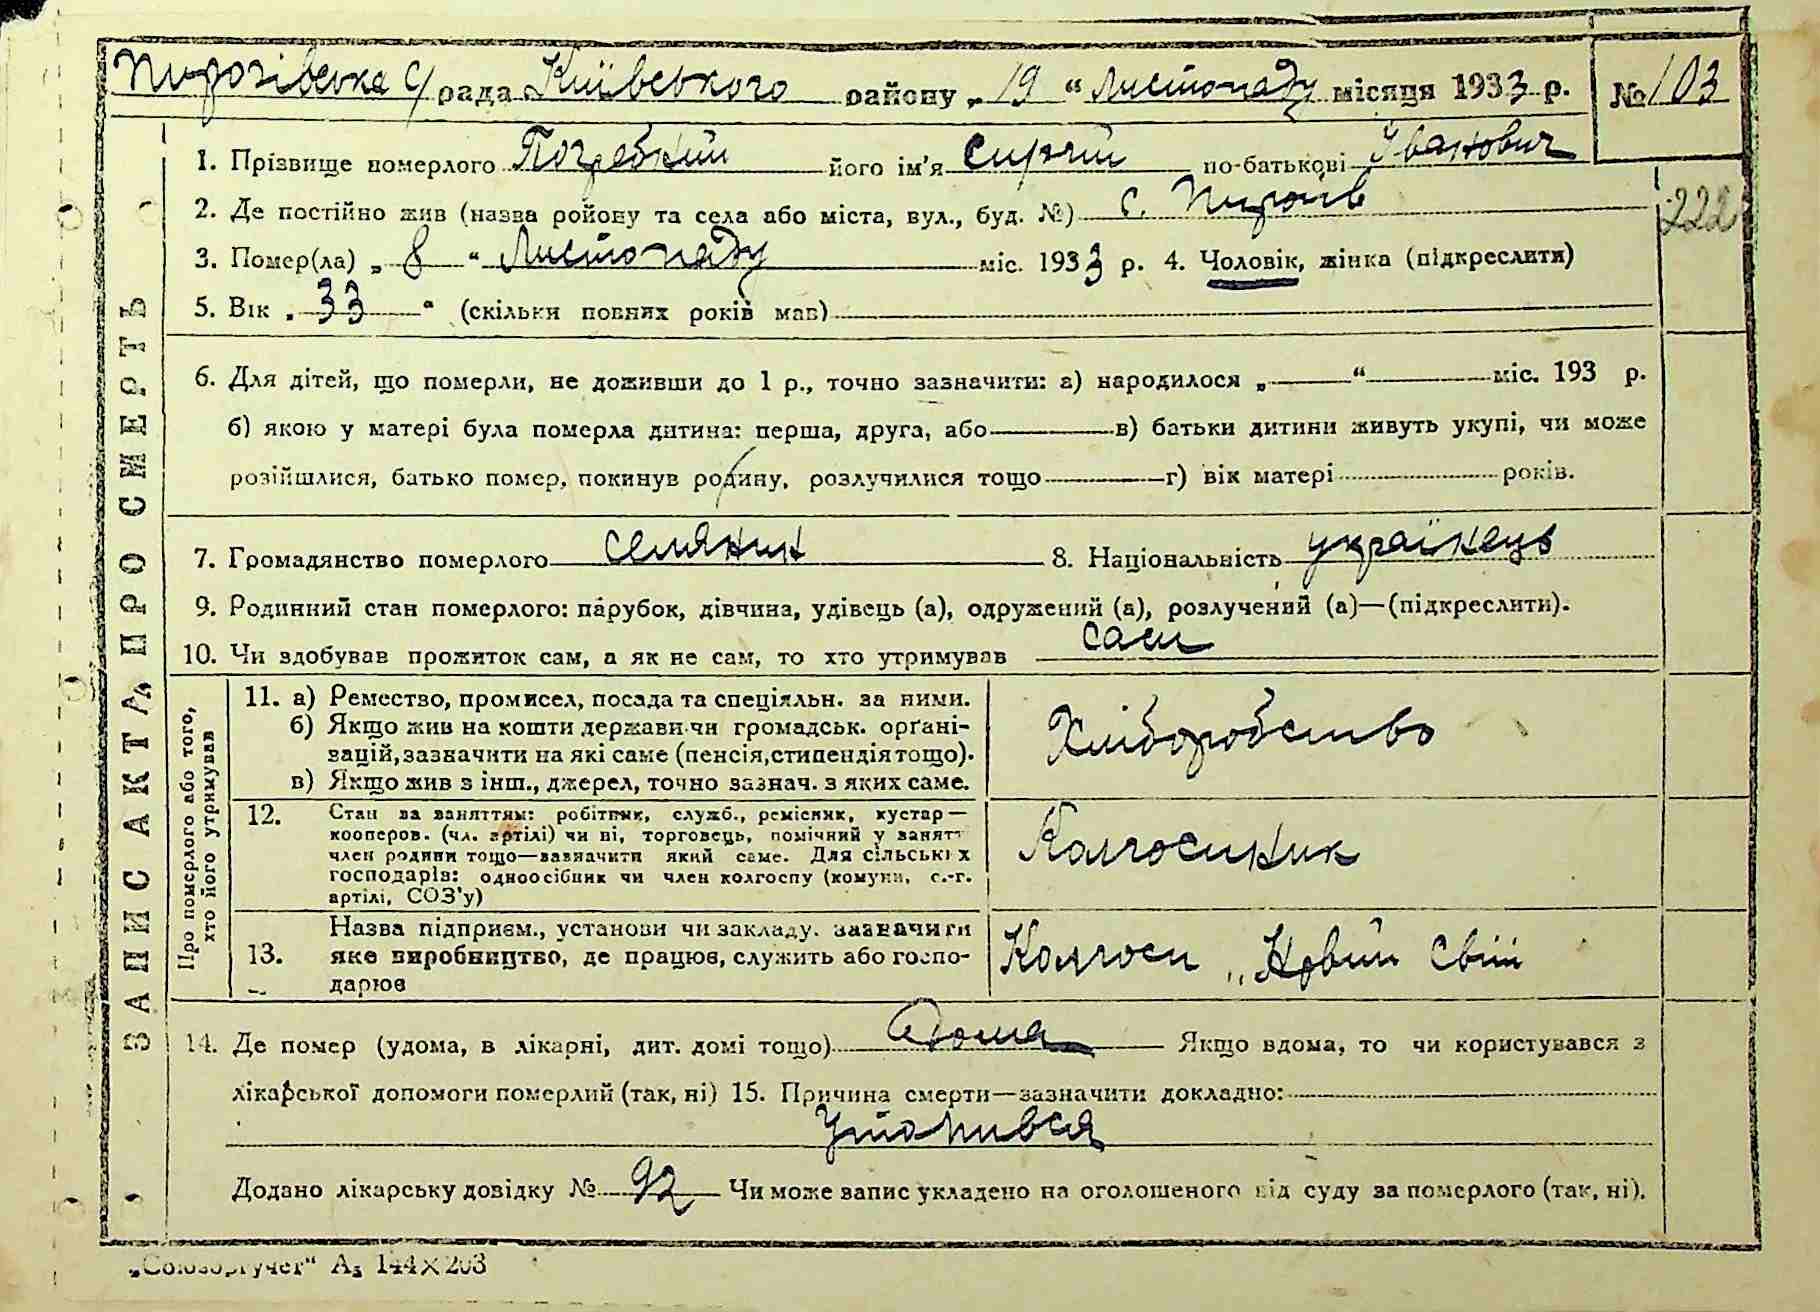 Пирогівська с/рада Київського району „19“ Листопаду місяця 1933 р. № 103
1. Прізвище померлого Погребний його ім'я Сиргій по-батькові Іванович
2. Де постійно жив (назва ройону та села або міста, вул., буд. №) с. Пирогів
222
3. Помер(ла) „8“ Листопаду міс. 1933 р. 4. Чоловік, жінка (підкреслити)
5. Вік „33“ (скільки повних років мав)
6. Для дітей, що померли, не доживши до 1 р., точно зазначити: а) народилося „ “ міс. 193 р.
б) якою у матері була померла дитина: перша, друга, або в) батьки дитини живуть укупі, чи може
розійшлися, батько помер, покинув родину, розлучилися тощо г) вік матері років.
7. Громадянство померлого селянин 8. Національність українець
9. Родинний стан померлого: парубок, дівчина, удівець (а), одружений (а), розлучений (а)—(підкреслити).
10. Чи здобував прожиток сам, а як не сам, то хто утримував сам
ЗАПИС АКТА ПРО СМЕРТЬ
Про померлого або того,
хто його утримував
11. а) Ремество, промисел, посада та спеціяльн. за ними.
б) Якщо жив на кошти держави чи громадськ. орґані-
зацій, зазначити на які саме (пенсія, стипендія тощо).
в) Якщо жив з інш., джерел, точно зазнач. з яких саме.
Хліборобство
12. Стан за заняттям: робітник, служб., ремісник, кустар—
кооперов. (чл. артілі) чи ні, торговець, помічний у занятт
член родини тощо—зазначити який саме. Для сільських
господарів: одноосібник чи член колгоспу (комуни, с.-г.
артілі, СОЗ'у)
Колгоспник
13. Назва підприєм., установи чи закладу. зазначити
яке виробництво, де працює, служить або госпо-
дарює
Колгосп „Новий Світ
14. Де помер (удома, в лікарні, дит. домі тощо) Дома Якщо вдома, то чи користувався з
лікарської допомоги померлий (так, ні) 15. Причина смерти—зазначити докладно:
Утопився
Додано лікарську довідку № 92 Чи може запис укладено на оголошеного від суду за померлого (так, ні).
„Союзоргучет“ А₅ 144×203